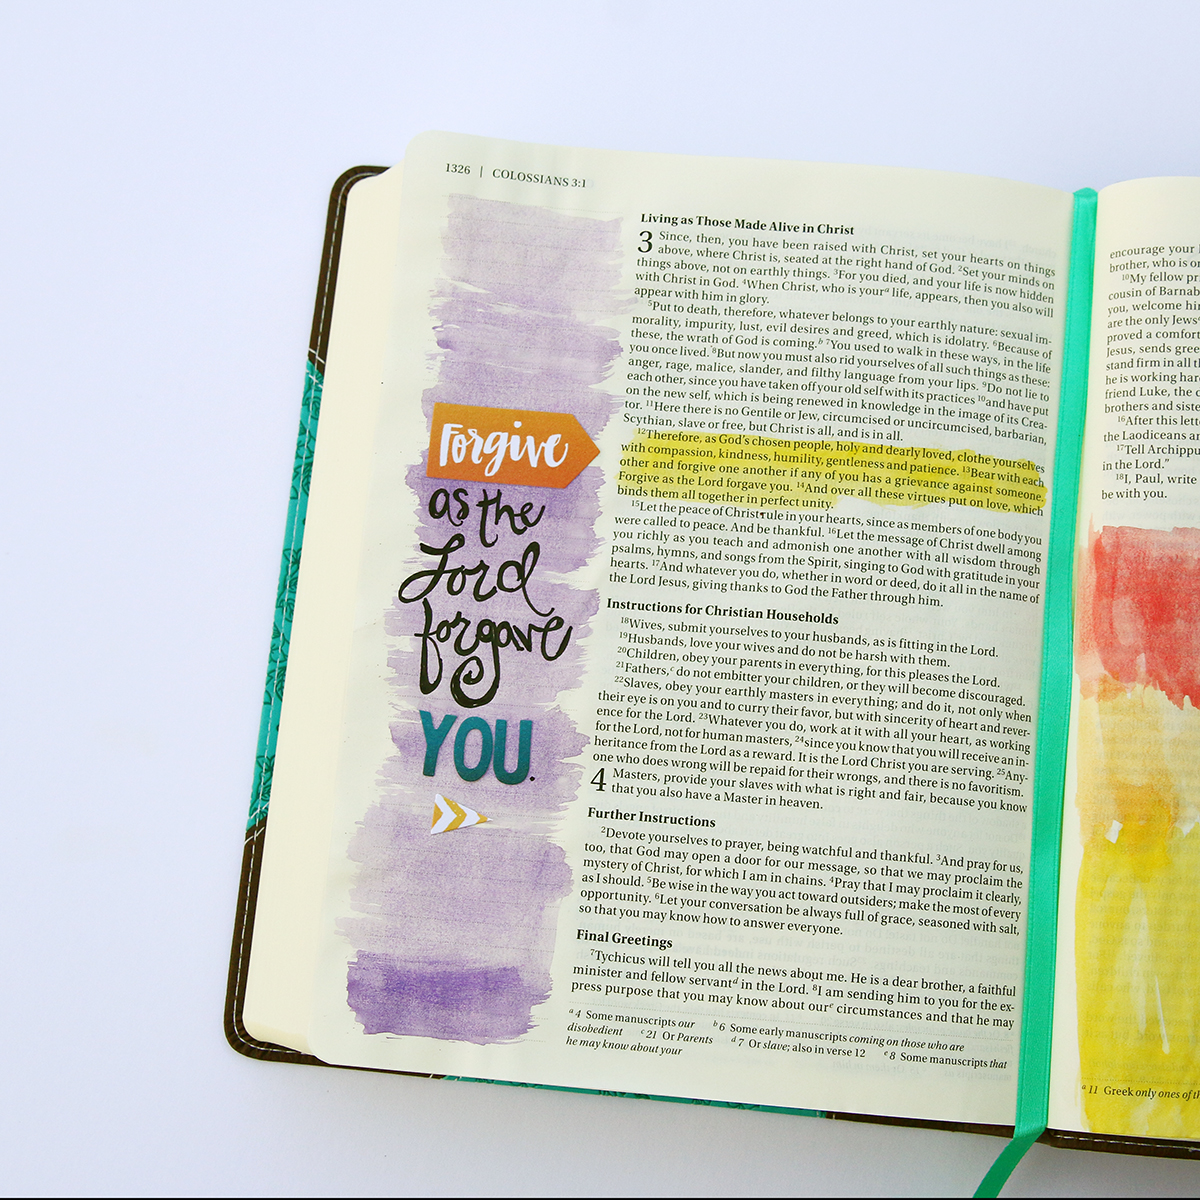 1326 | COLOSSIANS 3:1
Forgive
as the
Lord
forgave
YOU.
Living as Those Made Alive in Christ
3 Since, then, you have been raised with Christ, set your hearts on things
above, where Christ is, seated at the right hand of God. 2Set your minds on
things above, not on earthly things. 3For you died, and your life is now hidden
with Christ in God. 4When Christ, who is your a life, appears, then you also will
appear with him in glory.
5Put to death, therefore, whatever belongs to your earthly nature: sexual im-
morality, impurity, lust, evil desires and greed, which is idolatry. 6Because of
these, the wrath of God is coming. b 7You used to walk in these ways, in the life
you once lived. 8But now you must also rid yourselves of all such things as these:
anger, rage, malice, slander, and filthy language from your lips. 9Do not lie to
each other, since you have taken off your old self with its practices 10and have put
on the new self, which is being renewed in knowledge in the image of its Crea-
tor. 11Here there is no Gentile or Jew, circumcised or uncircumcised, barbarian,
Scythian, slave or free, but Christ is all, and is in all.
12Therefore, as God's chosen people, holy and dearly loved, clothe yourselves
with compassion, kindness, humility, gentleness and patience. 13Bear with each
other and forgive one another if any of you has a grievance against someone.
Forgive as the Lord forgave you. 14And over all these virtues put on love, which
binds them all together in perfect unity.
15Let the peace of Christ rule in your hearts, since as members of one body you
were called to peace. And be thankful. 16Let the message of Christ dwell among
you richly as you teach and admonish one another with all wisdom through
psalms, hymns, and songs from the Spirit, singing to God with gratitude in your
hearts. 17And whatever you do, whether in word or deed, do it all in the name of
the Lord Jesus, giving thanks to God the Father through him.
Instructions for Christian Households
18Wives, submit yourselves to your husbands, as is fitting in the Lord.
19Husbands, love your wives and do not be harsh with them.
20Children, obey your parents in everything, for this pleases the Lord.
21Fathers, c do not embitter your children, or they will become discouraged.
22Slaves, obey your earthly masters in everything; and do it, not only when
their eye is on you and to curry their favor, but with sincerity of heart and rever-
ence for the Lord. 23Whatever you do, work at it with all your heart, as working
for the Lord, not for human masters, 24since you know that you will receive an in-
heritance from the Lord as a reward. It is the Lord Christ you are serving. 25Any-
one who does wrong will be repaid for their wrongs, and there is no favoritism.
4 Masters, provide your slaves with what is right and fair, because you know
that you also have a Master in heaven.
Further Instructions
2Devote yourselves to prayer, being watchful and thankful. 3And pray for us,
too, that God may open a door for our message, so that we may proclaim the
mystery of Christ, for which I am in chains. 4Pray that I may proclaim it clearly,
as I should. 5Be wise in the way you act toward outsiders; make the most of every
opportunity. 6Let your conversation be always full of grace, seasoned with salt,
so that you may know how to answer everyone.
Final Greetings
7Tychicus will tell you all the news about me. He is a dear brother, a faithful
minister and fellow servant d in the Lord. 8I am sending him to you for the ex-
press purpose that you may know about our e circumstances and that he may
a 4 Some manuscripts our b 6 Some early manuscripts coming on those who are
disobedient c 21 Or Parents d 7 Or slave; also in verse 12 e 8 Some manuscripts that
he may know about your
encourage your
brother, who is
10My fellow
cousin of
you, welcome
are the only Jews
proved a
Jesus, sends
stand firm in all
he is working
friend Luke, the
brothers and
16After this
the Laodiceans
17Tell
in the Lord."
18I, Paul, write
be with you.
a 11 Greek only ones of